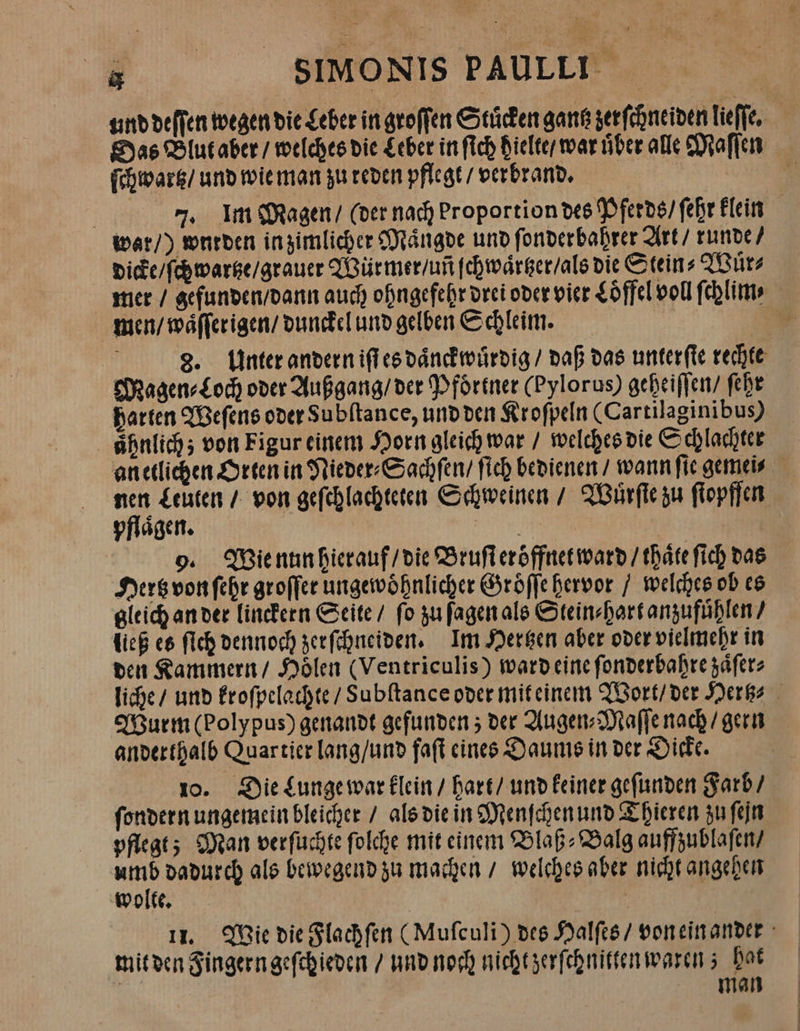 4 SIMONIS PAULLI
und deſſen wegen die Leber in groſſen Stuͤcken gantz zerſchneiden lieſſe.
Das Blut aber / welches die Leber in ſich hielte / war uͤber alle Maſſen
ſchwartz / und wie man zu reden pflegt / verbrand.
7. Im Magen / (der nach Proportion des Pferds / ſehr klein
war /) wurden in zimlicher Maͤngde und ſonderbahrer Art / runde /
dicke / ſchwartze / grauer Wuͤrmer / uñ ſchwaͤrtzer / als die Stein⸗Wuͤr⸗
mer / gefunden / dann auch ohngefehr drei oder vier Loͤffel voll ſchlim⸗
men / waͤſſerigen / dunckel und gelben Schleim.
8. Unter andern iſt es daͤnckwuͤrdig / daß das unterſte rechte
Magen⸗Loch oder Außgang / der Pfoͤrtner (Pylorus) geheiſſen / ſehr
harten Weſens oder Subſtance, und den Kroſpeln (Cartilaginibus)
aͤhnlich; von Figur einem Horn gleich war / welches die Schlachter
an etlichen Orten in Nieder⸗Sachſen / ſich bedienen / wann ſie gemei⸗
nen Leuten / von geſchlachteten Schweinen / Wuͤrſte zu ſtopffen
pflaͤgen.
9. Wie nun hierauf / die Bruſt eroͤffnet ward / thaͤte ſich das
Hertz von ſehr groſſer ungewoͤhnlicher Groͤſſe hervor / welches ob es
gleich an der linckern Seite / ſo zu ſagen als Stein⸗hart anzufuͤhlen /
ließ es ſich dennoch zerſchneiden. Im Hertzen aber oder vielmehr in
den Kammern / Hoͤlen (Ventriculis) ward eine ſonderbahre zaͤſer⸗
liche / und kroſpelachte / Subſtance oder mit einem Wort / der Hertz⸗
Wurm (Polypus) genandt gefunden; der Augen⸗Maſſe nach / gern
anderthalb Quartier lang / und faſt eines Daums in der Dicke.
10. Die Lunge war klein / hart / und keiner geſunden Farb /
ſondern ungemein bleicher / als die in Menſchen und Thieren zu ſejn
pflegt; Man verſuchte ſolche mit einem Blaß⸗Balg auffzublaſen /
umb dadurch als bewegend zu machen / welches aber nicht angehen
wolte.
11. Wie die Flachſen (Muſculi) des Halſes / von einander
mit den Fingern geſchieden / und noch nicht zerſchnitten waren; hat
man